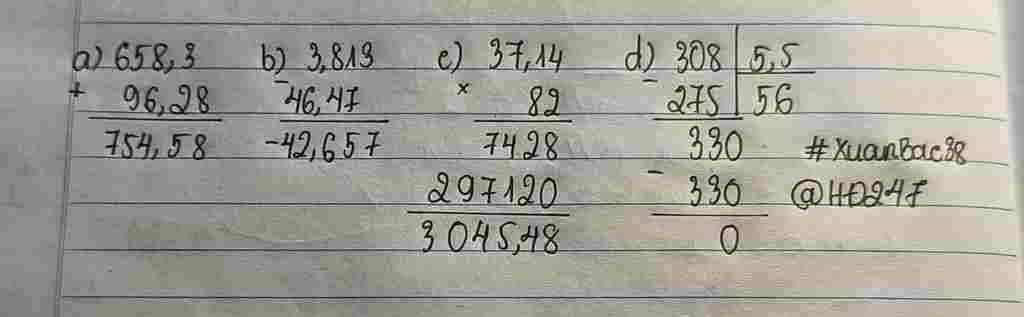 a) 658,3 b) 3,813 c) 37,14 d) 308 5,5
+ 96,28 - 46,47 x 82 - 275 56
754,58 -42,657 7428 330 #XuanBac38
297120 - 330 @HĐ247
3045,48 0